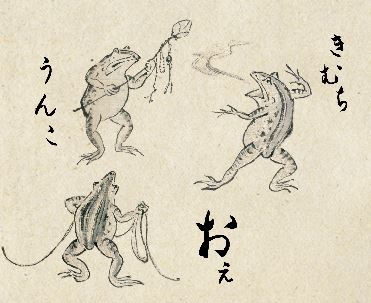 きむち
うんこ
おぇ